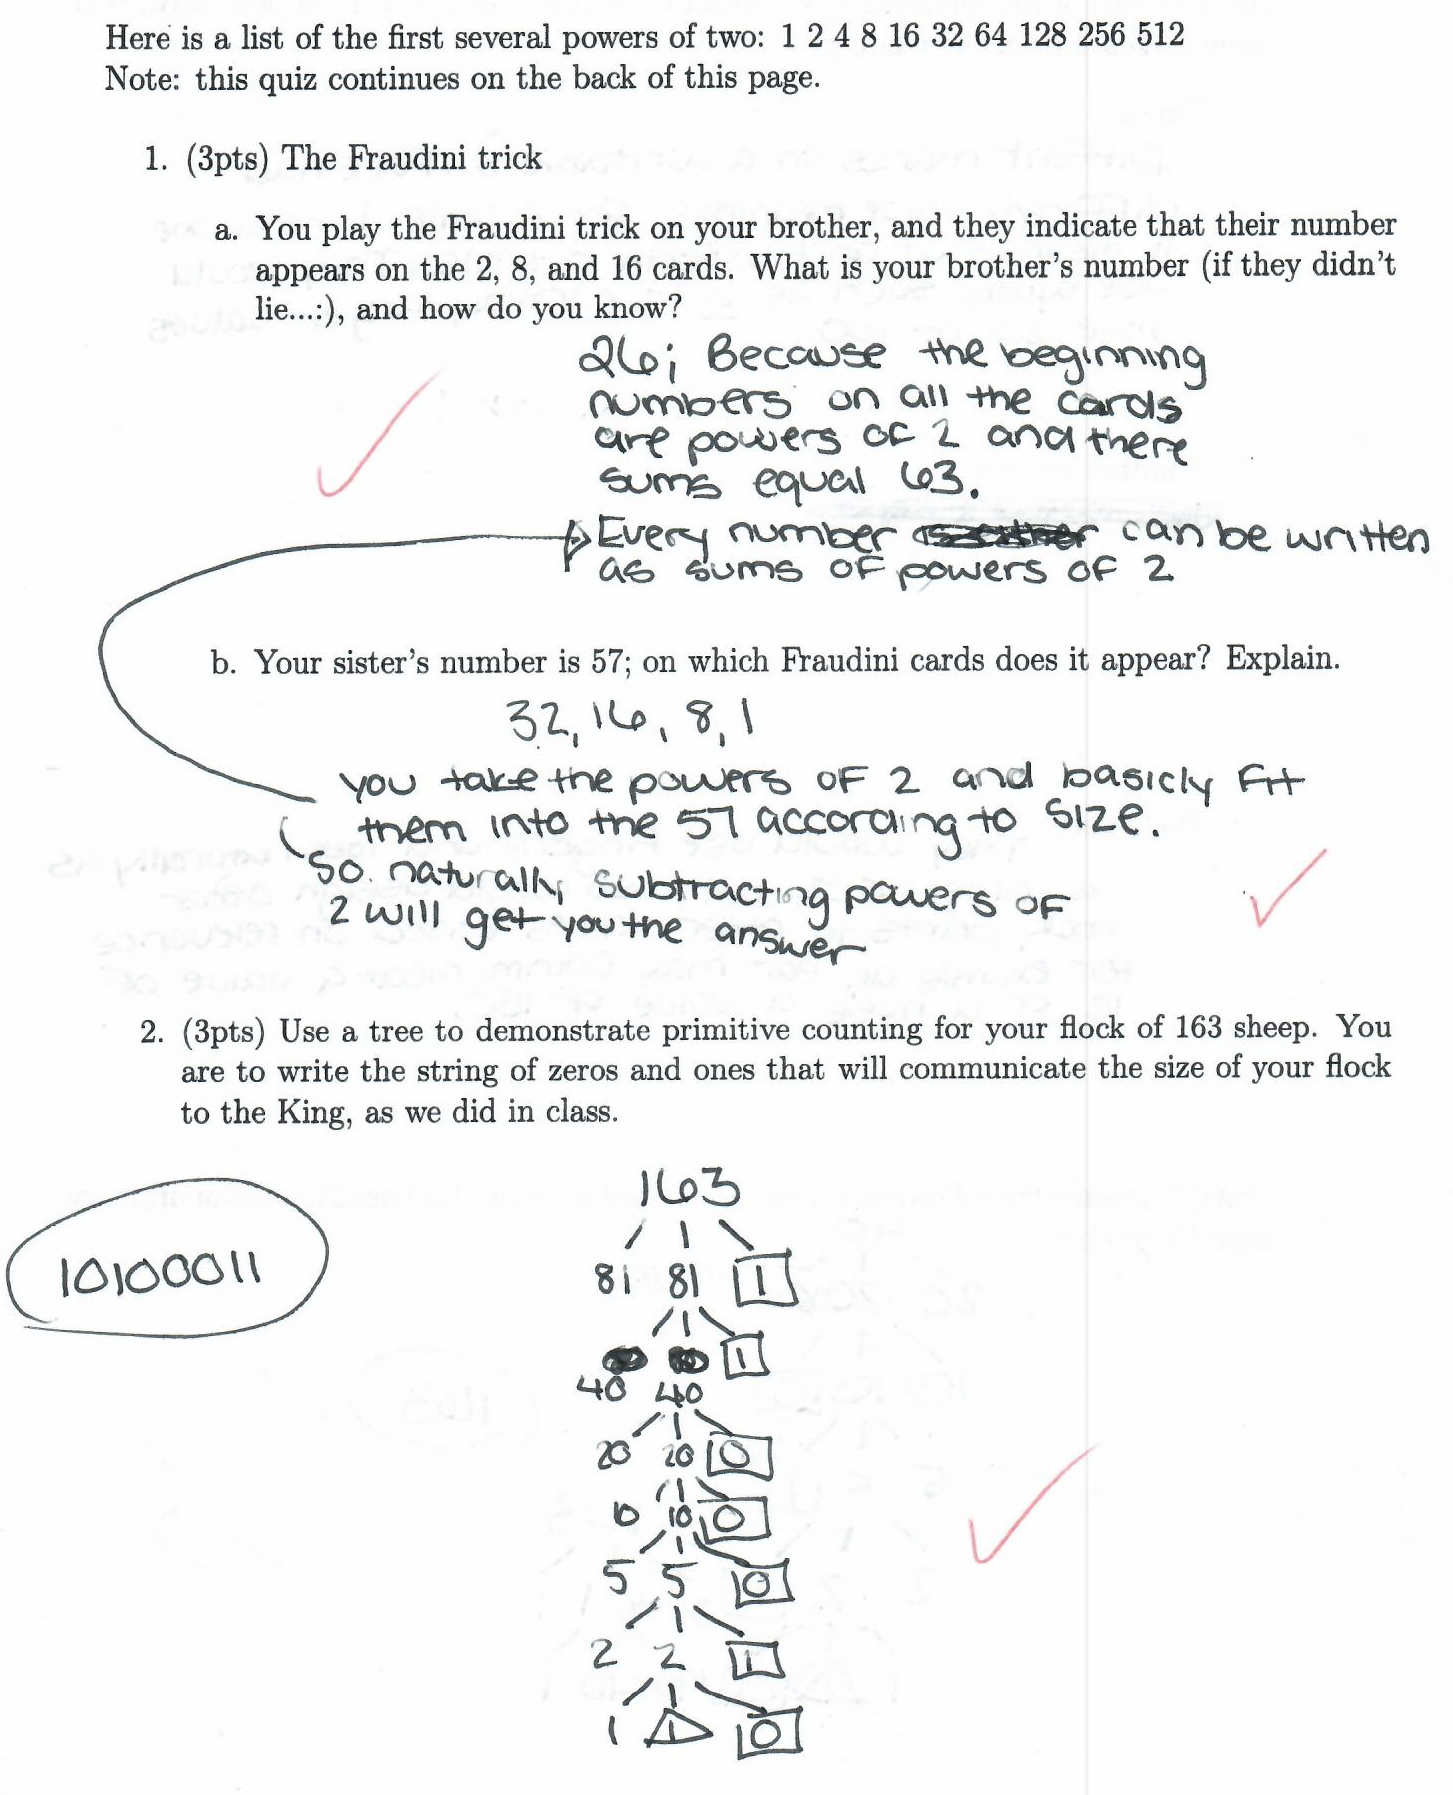 Here is a list of the first several powers of two: 1 2 4 8 16 32 64 128 256 512
Note: this quiz continues on the back of this page.
1. (3pts) The Fraudini trick
a. You play the Fraudini trick on your brother, and they indicate that their number
appears on the 2, 8, and 16 cards. What is your brother's number (if they didn't
lie...:), and how do you know?
26; Because the beginning
numbers on all the cards
are powers of 2 and there
sums equal 63.
Every number can be written
as sums of powers of 2
b. Your sister's number is 57; on which Fraudini cards does it appear? Explain.
32, 16, 8, 1
you take the powers of 2 and basicly fit
them into the 57 according to size.
So naturally subtracting powers of
2 will get you the answer
2. (3pts) Use a tree to demonstrate primitive counting for your flock of 163 sheep. You
are to write the string of zeros and ones that will communicate the size of your flock
to the King, as we did in class.
163
10100011
81 81 1
1
40 40
20 20 0
10 10 0
5 5 0
2 2 1
1 1 0